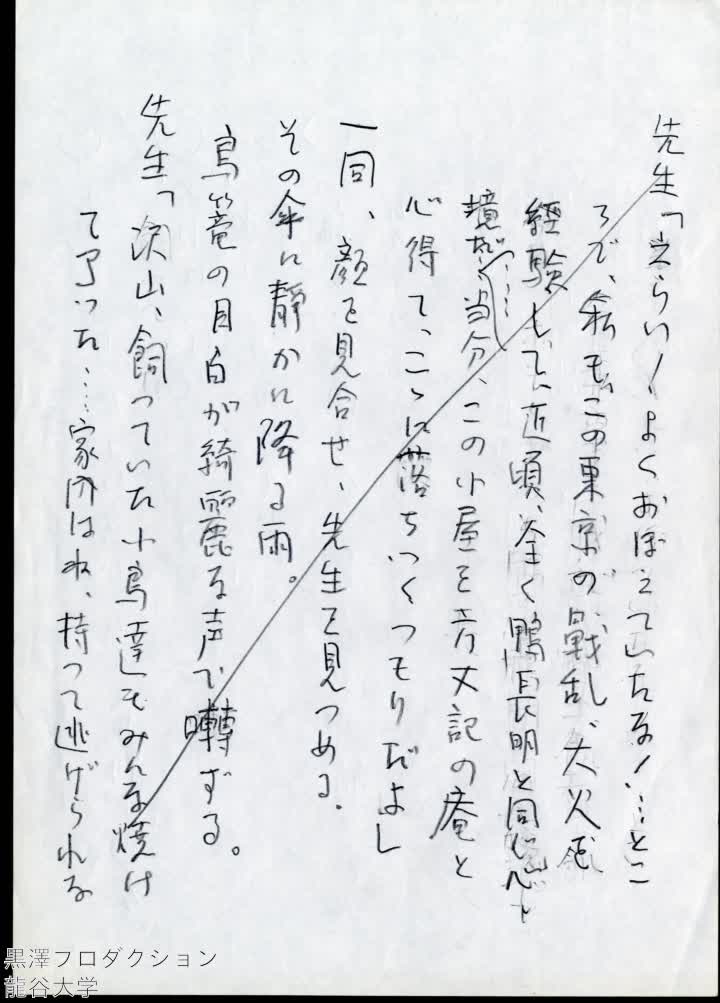 先生「えらい！よくおぼえていたな！…とこ
ろで、私も、この東京の戦乱、大火を
経験して、近頃、全く鴨長明と同じ心
境だ……当分、この小屋を方丈記の庵と
心得て、こゝに落ちつくつもりだよ」
一同、顔を見合せ、先生を見つめる。
その傘に静かに降る雨。
鳥籠の目白が綺麗な声で囀ずる。
先生「沢山、飼っていた小鳥達もみんな焼け
て了った…家内はね、持って逃げられな
黒澤プロダクション
龍谷大学